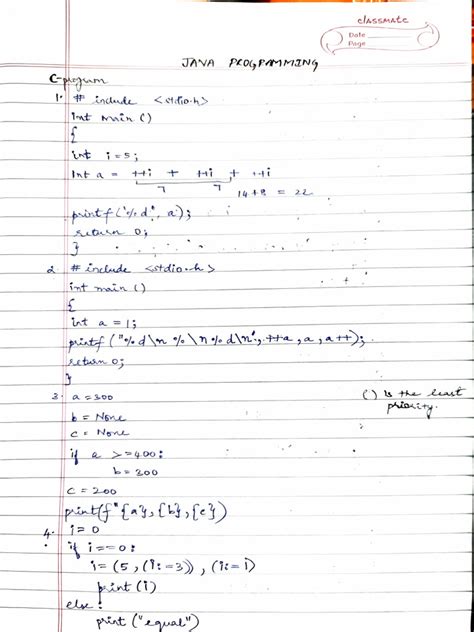 classmate
Date
Page
JAVA PROGRAMMING
C-program
1. # include <stdio.h>
int main ()
{
int i=5;
Int a = ++i + ++i + ++i
7 7 14+8 = 22
printf ('%d', a);
return 0;
}
2. # include <stdio.h>
int main ()
{
int a = 1;
printf ("%d\n %\n %d\n", ++a, a, a++);
return 0;
}
3. a=300 ( ) is the least
b = None priority.
c = None
if a >=400:
b=200
c = 200
print(f"{a}, {b}, {c})
4. i=0
if i==0:
i= (5, (i:=3)), (i:=1)
print (i)
else:
print ("equal")